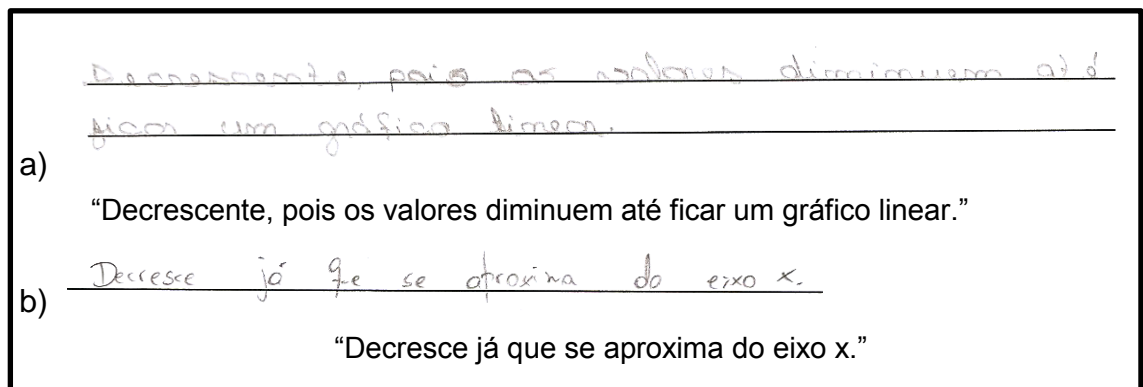 Decrescente, pois os valores diminuem até
ficar um gráfico linear.
a)
“Decrescente, pois os valores diminuem até ficar um gráfico linear.”
Decresce já que se aproxima do eixo x.
b)
“Decresce já que se aproxima do eixo x.”